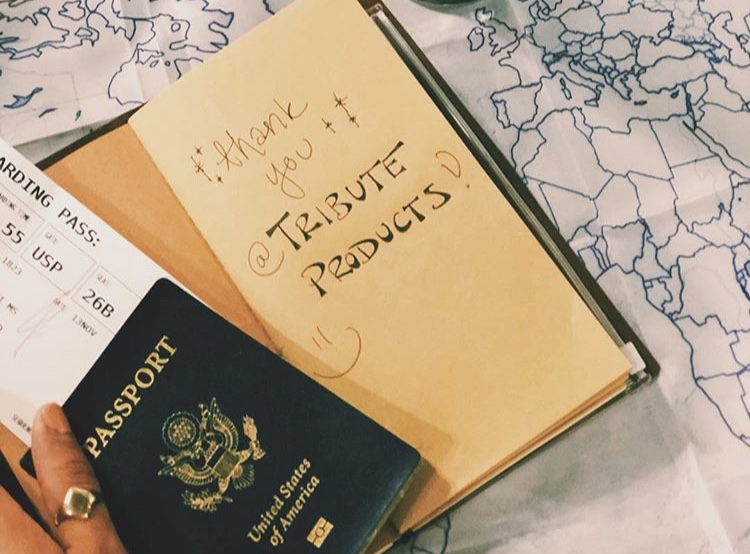 ARDING PASS:
55 USP
1823
26B
13NOV
thank
you
@TRIBUTE
PRODUCTS!
PASSPORT
United States
of America